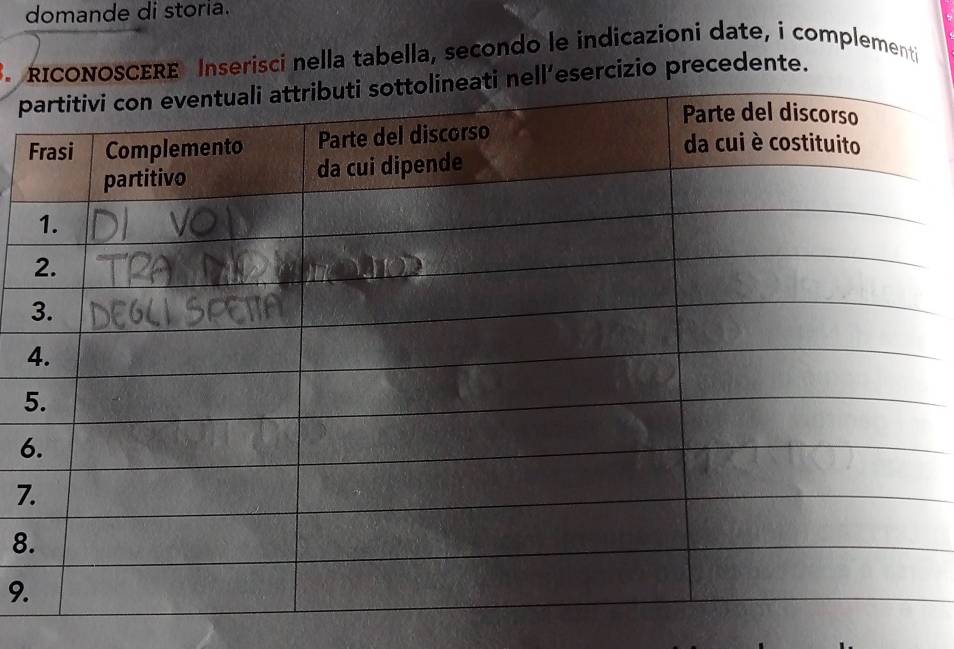 domande di storia.
3. RICONOSCERE Inserisci nella tabella, secondo le indicazioni date, i complementi
partitivi con eventuali attributi sottolineati nell'esercizio precedente.
Frasi Complemento partitivo Parte del discorso da cui dipende Parte del discorso da cui è costituito
1. DI VOI
2. TRA
3. DEGLI SPETTA
4.
5.
6.
7.
8.
9.